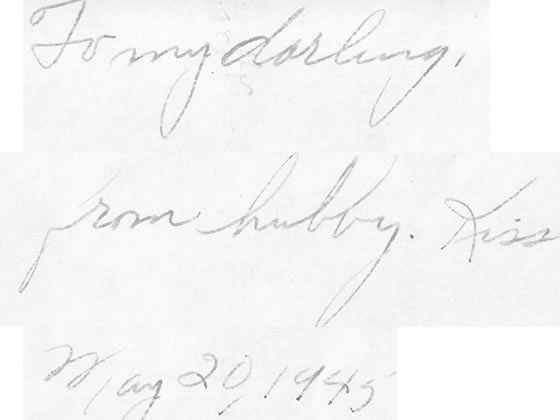 To my darling,
from hubby. Kiss
May 20, 1945